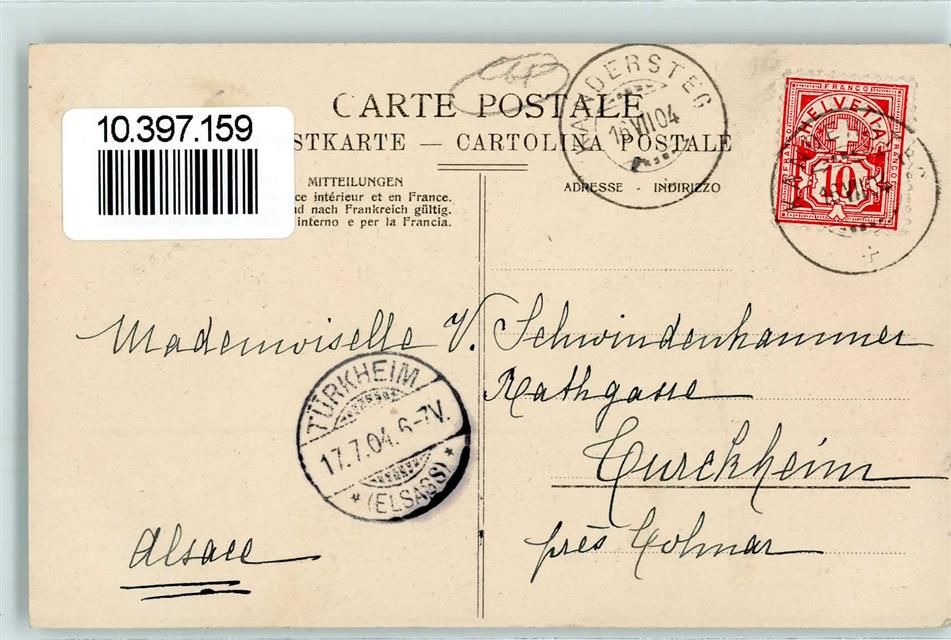 10.397.159
CARTE POSTALE
STKARTE — CARTOLINA POSTALE
MITTEILUNGEN
ce intérieur et en France.
d nach Frankreich gültig.
interno e per la Francia.
ADRESSE - INDIRIZZO
KANDERSTEG
16 VII 04
FRANCO
HELVETIA
FRANCO
FRANCO
10
Mademoiselle V. Schwindenhammer
Rathgasse
Turckheim
près Colmar
Alsace
TÜRKHEIM
17.7.04. 6-7V.
* (ELSASS) *